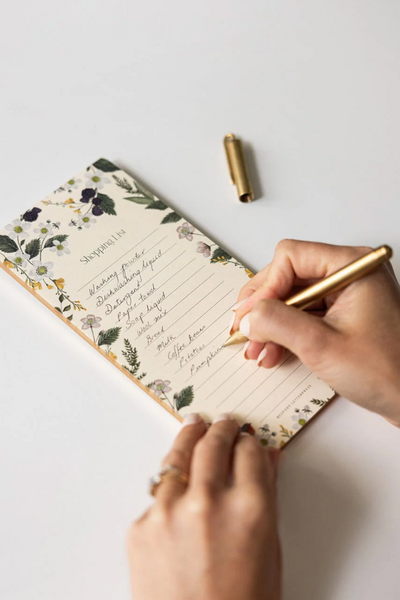 Shopping List
Washing powder
Dishwashing liquid
Detergent
Paper towel
Soap liquid
Bread
Milk
Coffee beans
Potatoes
Pumpkin